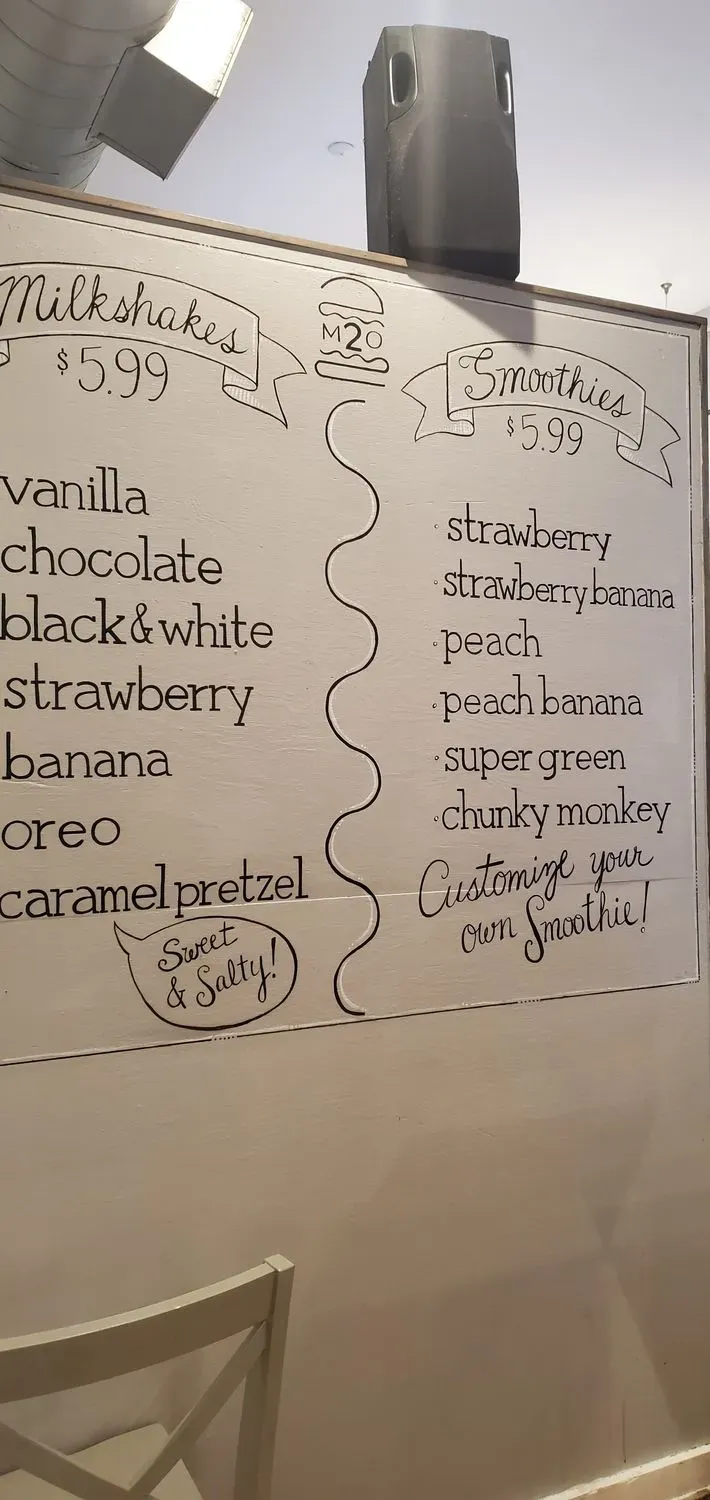 Milkshakes
$5.99
vanilla
chocolate
black & white
strawberry
banana
oreo
caramel pretzel
Sweet
& Salty!
M2O
Smoothies
$5.99
· strawberry
· strawberry banana
· peach
· peach banana
· super green
· chunky monkey
Customize your
own Smoothie!